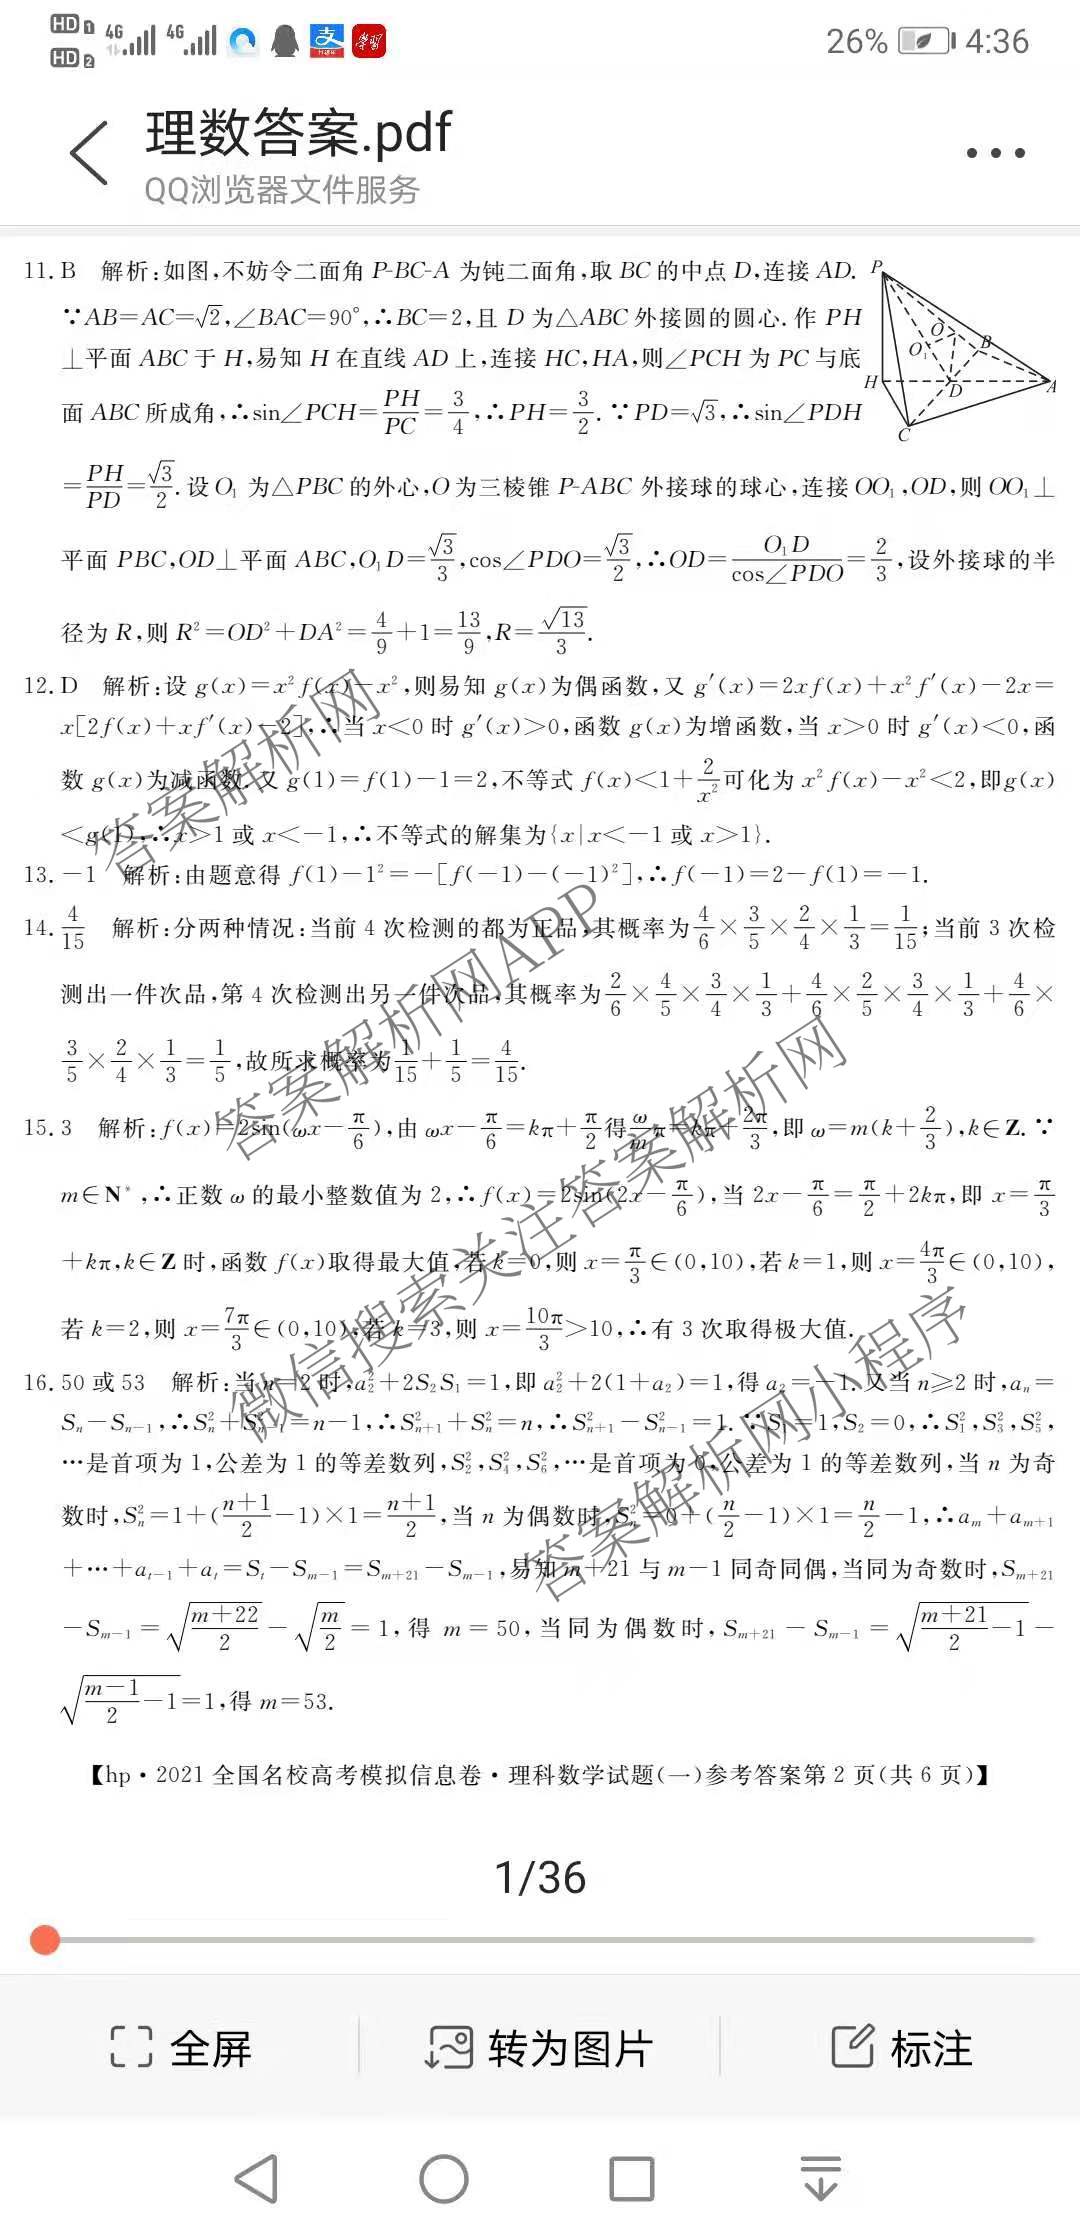 HD 1 4G 4G 支 学习 26% 4:36
HD 2
理数答案.pdf
QQ浏览器文件服务
11. B 解析:如图,不妨令二面角 P-BC-A 为钝二面角,取 BC 的中点 D,连接 AD.
∵AB=AC=√2,∠BAC=90°,∴BC=2,且 D 为△ABC 外接圆的圆心. 作 PH
⊥平面 ABC 于 H,易知 H 在直线 AD 上,连接 HC,HA,则∠PCH 为 PC 与底
面 ABC 所成角,∴sin∠PCH=PH/PC=3/4,∴PH=3/2. ∵PD=√3,∴sin∠PDH
P
O
O
B
H
D
A
C
=PH/PD=√3/2. 设 O₁ 为△PBC 的外心,O 为三棱锥 P-ABC 外接球的球心,连接 OO₁,OD,则 OO₁⊥
平面 PBC,OD⊥平面 ABC,O₁D=√3/3,cos∠PDO=√3/2,∴OD=O₁D/cos∠PDO=2/3,设外接球的半
径为 R,则 R²=OD²+DA²=4/9+1=13/9,R=√13/3.
12. D 解析:设 g(x)=x²f(x)-x²,则易知 g(x)为偶函数,又 g′(x)=2xf(x)+x²f′(x)-2x=
x[2f(x)+xf′(x)-2],∴当 x<0 时 g′(x)>0,函数 g(x)为增函数,当 x>0 时 g′(x)<0,函
数 g(x)为减函数. 又 g(1)=f(1)-1=2,不等式 f(x)<1+2/x²可化为 x²f(x)-x²<2,即g(x)
<g(1),∴x>1 或 x<-1,∴不等式的解集为{x|x<-1 或 x>1}.
13. -1 解析:由题意得 f(1)-1²=-[f(-1)-(-1)²],∴f(-1)=2-f(1)=-1.
14. 4/15 解析:分两种情况:当前 4 次检测的都为正品,其概率为4/6×3/5×2/4×1/3=1/15;当前 3 次检
测出一件次品,第 4 次检测出另一件次品,其概率为2/6×4/5×3/4×1/3+4/6×2/5×3/4×1/3+4/6×
3/5×2/4×1/3=1/5,故所求概率为1/15+1/5=4/15.
15. 3 解析:f(x)=2sin(ωx-π/6),由 ωx-π/6=kπ+π/2得ω/mπ=kπ+2π/3,即 ω=m(k+2/3),k∈Z. ∵
m∈N*,∴正数 ω 的最小整数值为 2,∴f(x)=2sin(2x-π/6),当 2x-π/6=π/2+2kπ,即 x=π/3
+kπ,k∈Z 时,函数 f(x)取得最大值,若 k=0,则 x=π/3∈(0,10),若 k=1,则 x=4π/3∈(0,10),
若 k=2,则 x=7π/3∈(0,10),若 k=3,则 x=10π/3>10,∴有 3 次取得极大值.
16. 50 或 53 解析:当 n=2 时,a₂²+2S₂S₁=1,即 a₂²+2(1+a₂)=1,得 a₂=-1. 又当 n≥2 时,aₙ=
Sₙ-Sₙ₋₁,∴Sₙ²+Sₙ₋₁²=n-1,∴Sₙ₊₁²+Sₙ²=n,∴Sₙ₊₁²-Sₙ₋₁²=1. ∵S₁=1,S₂=0,∴S₁²,S₃²,S₅²,
…是首项为 1,公差为 1 的等差数列,S₂²,S₄²,S₆²,…是首项为 0,公差为 1 的等差数列,当 n 为奇
数时,Sₙ²=1+(n+1/2-1)×1=n+1/2,当 n 为偶数时,Sₙ²=0+(n/2-1)×1=n/2-1,∴aₘ+aₘ₊₁
+…+aₜ₋₁+aₜ=Sₜ-Sₘ₋₁=Sₘ₊₂₁-Sₘ₋₁,易知 m+21 与 m-1 同奇同偶,当同为奇数时,Sₘ₊₂₁
-Sₘ₋₁=√(m+22/2)-√(m/2)=1,得 m=50,当同为偶数时,Sₘ₊₂₁-Sₘ₋₁=√(m+21/2-1)-
√(m-1/2-1)=1,得 m=53.
答案解析网
答案解析网APP
微信搜索关注答案解析网
答案解析网小程序
【hp·2021 全国名校高考模拟信息卷·理科数学试题(一)参考答案第 2 页(共 6 页)】
1/36
全屏 转为图片 标注